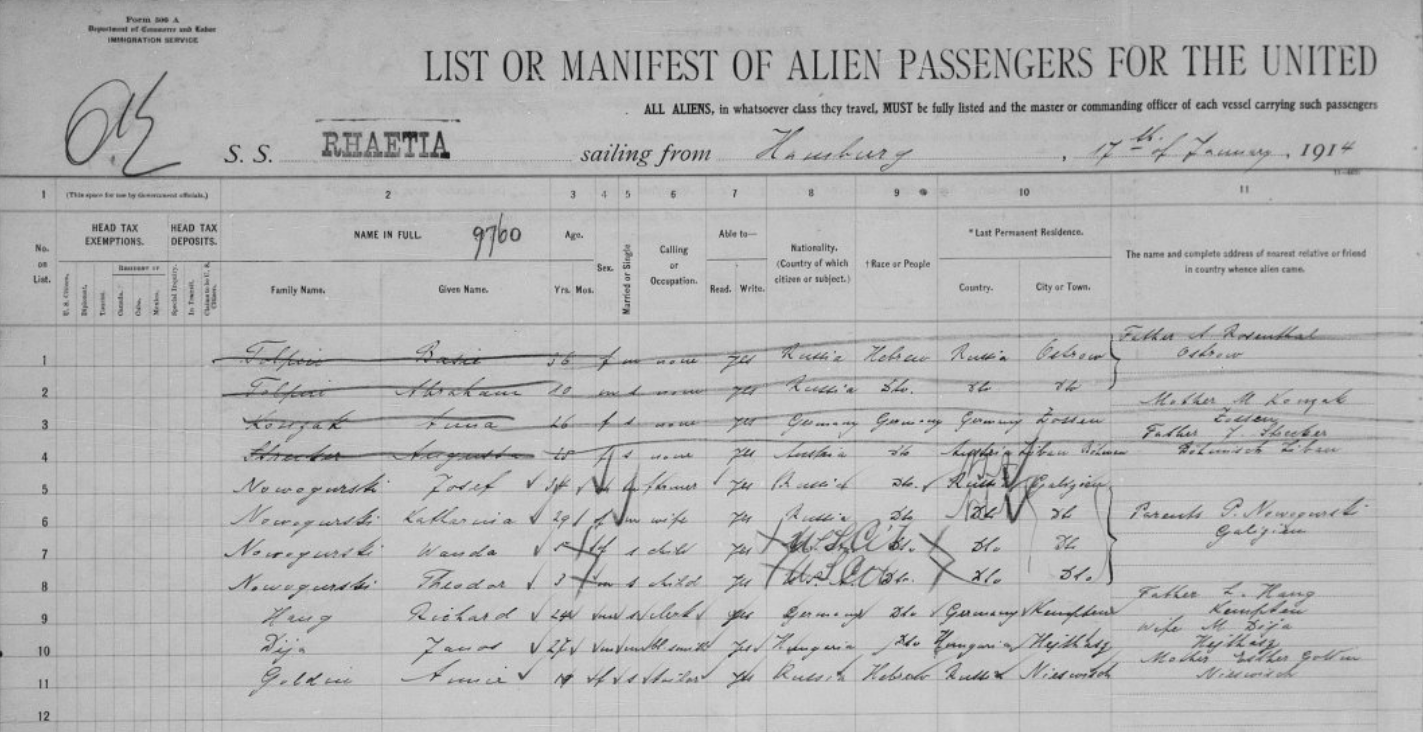 Form 500 A
Department of Commerce and Labor
IMMIGRATION SERVICE
LIST OR MANIFEST OF ALIEN PASSENGERS FOR THE UNITED
ALL ALIENS, in whatsoever class they travel, MUST be fully listed and the master or commanding officer of each vessel carrying such passengers
S. S. RHAETIA sailing from Hamburg, 17th of January, 1914
1 (This space for use by Government officials.) 2 3 4 5 6 7 8 9 10 11
No. on List.
HEAD TAX EXEMPTIONS.
HEAD TAX DEPOSITS.
U. S. Citizen.
Diplomat.
Tourist.
Canada.
Cuba.
Mexico.
Special Inquiry.
In Transit.
NAME IN FULL. 9760
Family Name. Given Name.
Age.
Yrs. Mos.
Sex.
Married or Single
Calling or Occupation.
Able to—
Read. Write.
Nationality. (Country of which citizen or subject.)
†Race or People
*Last Permanent Residence.
Country. City or Town.
The name and complete address of nearest relative or friend in country whence alien came.
1 Basie 36 f m none yes Russia Hebrew Russia Ostrow Father A. Rosenthal
Ostrow
2 Abraham m s none yes Russia Dto. dto dto
3 Anna 26 f s none yes Germany Germany Germany Zossen Mother M.
Zossen
4 Augusta f s none yes Austria Dto Austria Liban Father
Böhmisch Liban
5 Nowogurski Josef 34 m farmer yes Russia Dto. Russia Galizien
6 Nowogurski Katharina 29 f m wife yes Russia Dto Dto dto Parents P. Nowogurski
Galizien
7 Nowogurski Wanda 5 f s child yes Dto. Dto Dto
8 Nowogurski Theodor 3 m s child yes Dto. Dto Dto
9 Haug Richard 24 m s clerk yes Germany Dto Germany Kempten Father L. Haug
Kempten
10 Dija Janos 27 m m yes Hungaria Dto Hungaria Hejthasz Wife M. Dija
Hejthasz
11 Goldin Annie f s tailor yes Russia Hebrew Russia Nieswisch Mother Esther Goldin
Nieswisch
12